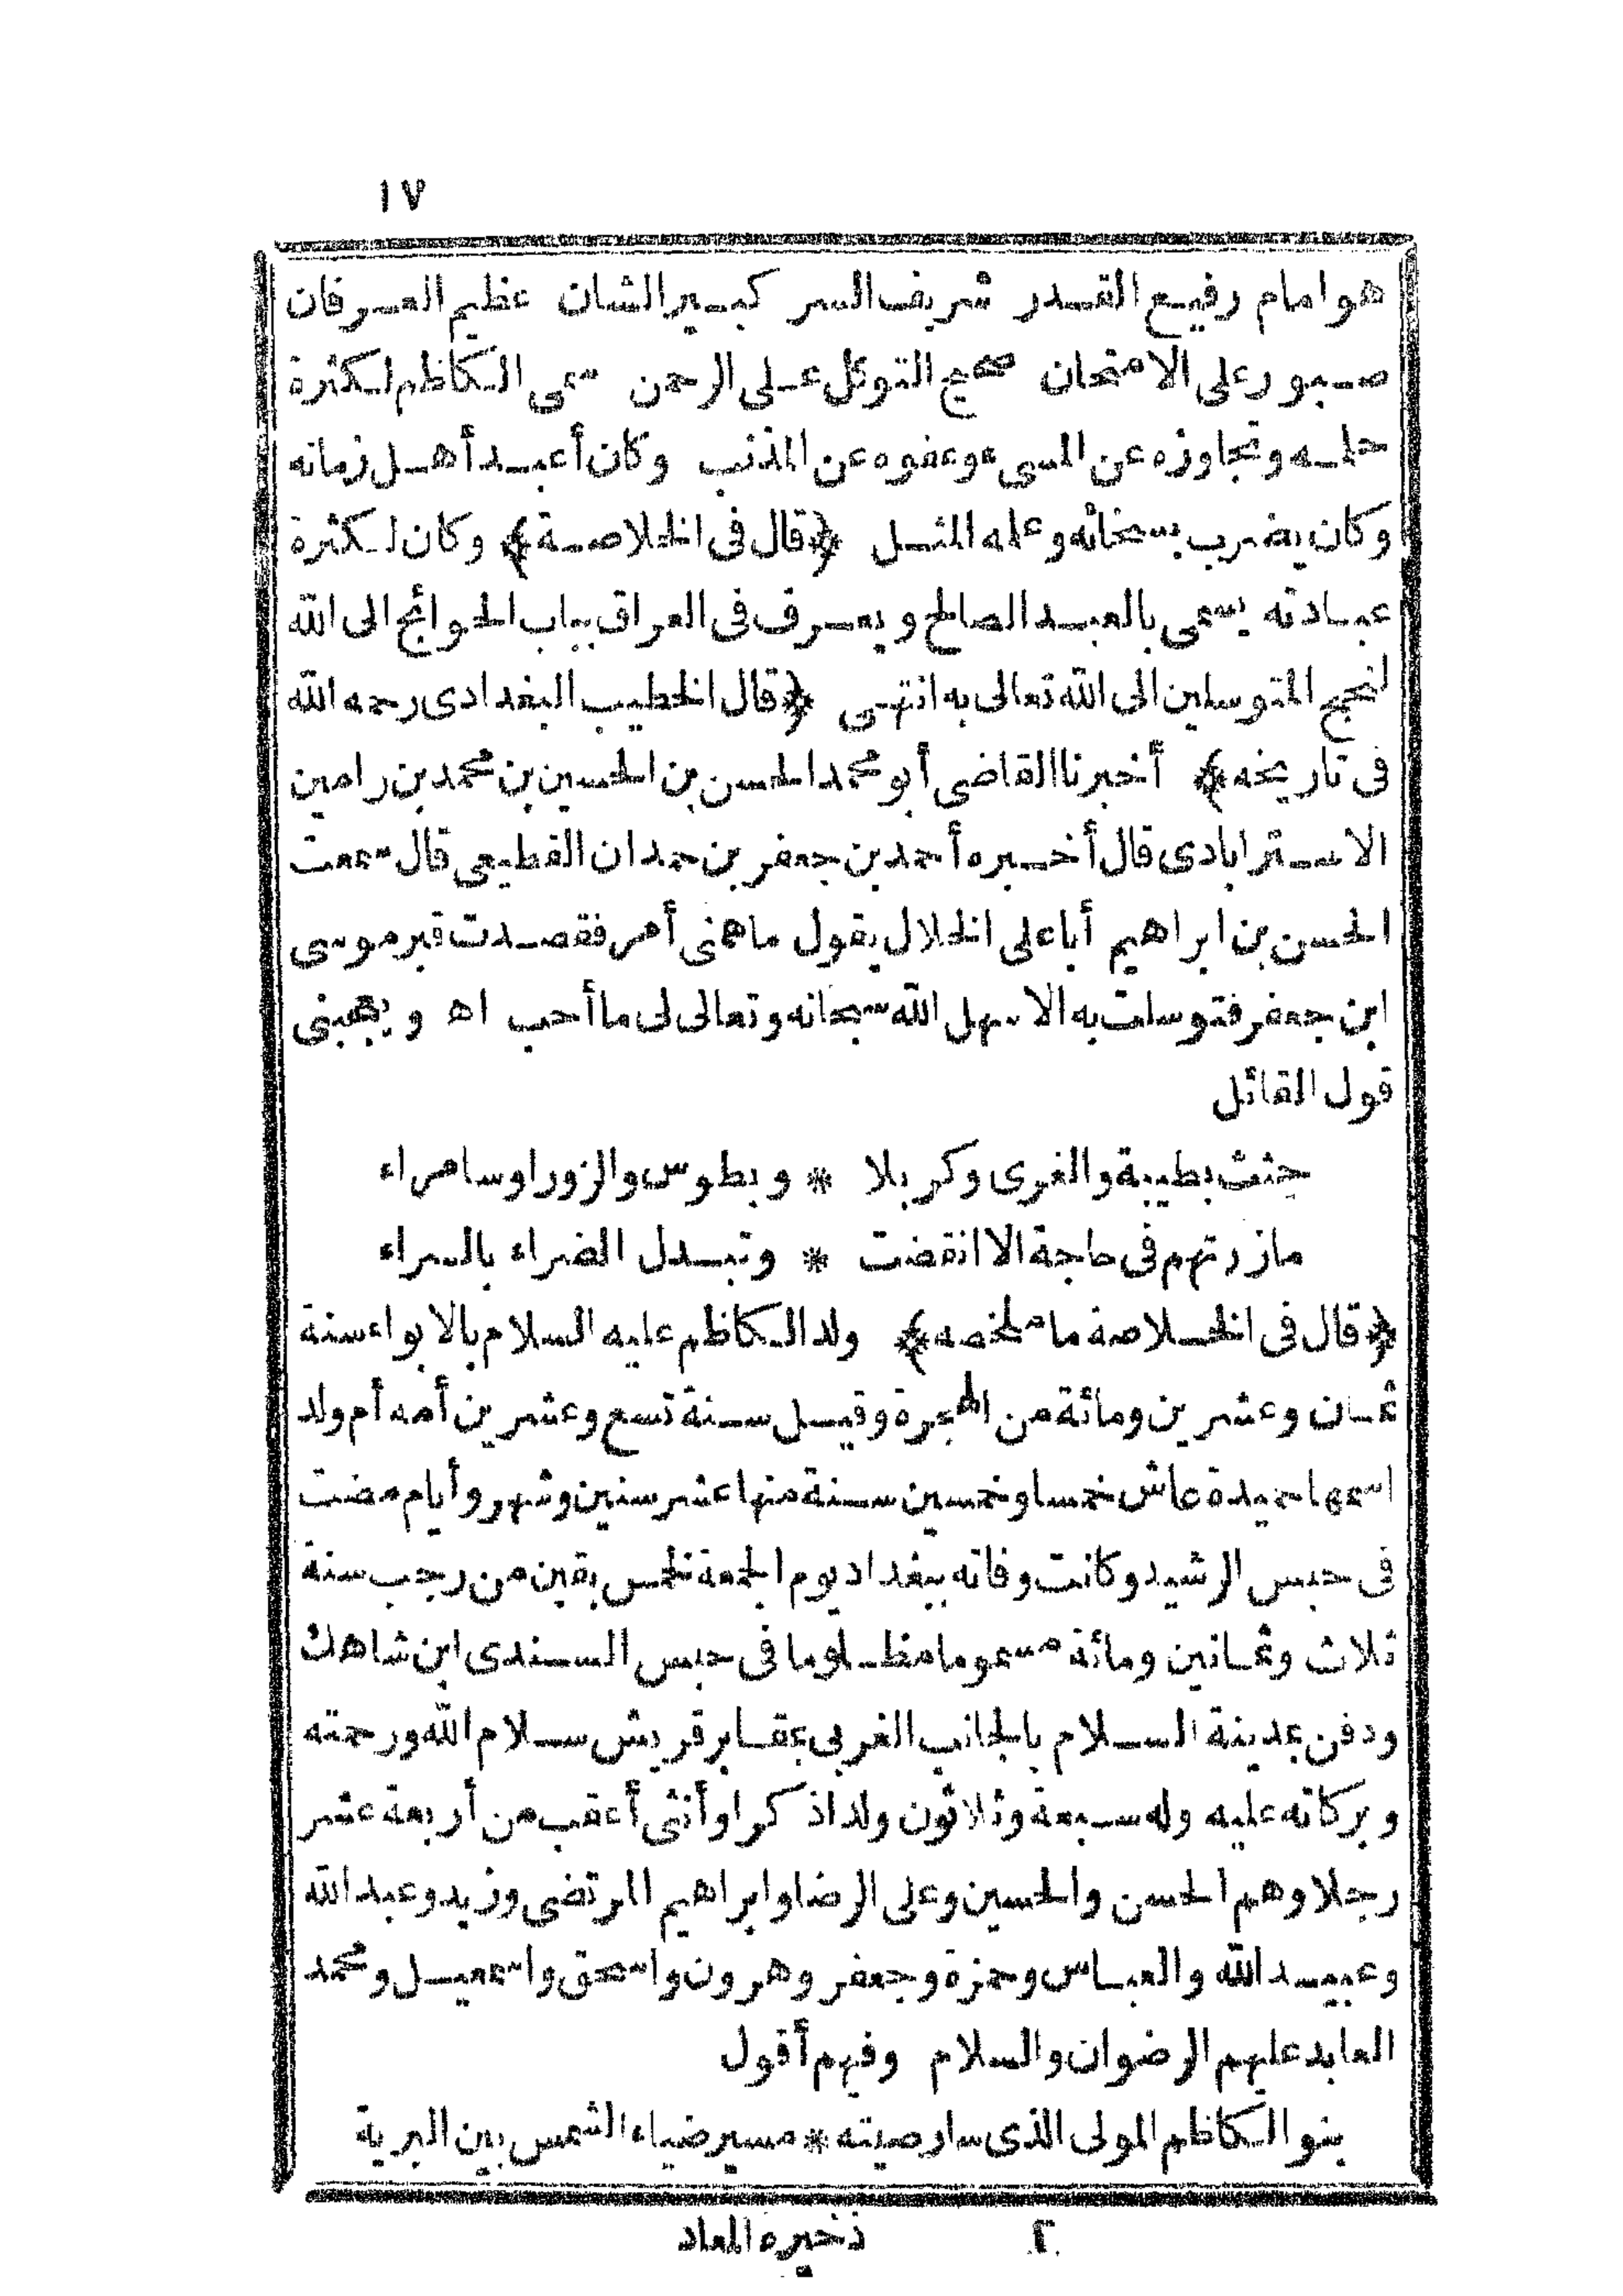 ١٧
هو امام رفيع القدر شريف السر كبير الشان عظيم العرفان
صبور على الامتحان صحيح التوكل على الرحمن سمى الكاظم لكثرة
حلمه وتجاوزه عن المسىء وعفوه عن المذنب وكان أعبد أهل زمانه
وكان يضرب بسخائه وعلمه المثل ﴿قال فى الخلاصة﴾ وكان لكثرة
عبادته يسمى بالعبد الصالح ويعرف فى العراق بباب الحوائج الى الله
لنجح المتوسلين الى الله تعالى به انتهى ﴿قال الخطيب البغدادى رحمه الله
فى تاريخه﴾ أخبرنا القاضى أبو محمد الحسن بن الحسين بن محمد بن رامين
الاسترابادى قال أخبره أحمد بن جعفر بن حمدان القطيعى قال سمعت
الحسن بن ابراهيم أبا على الخلال يقول ما همنى أمر فقصدت قبر موسى
ابن جعفر فتوسلت به الا سهل الله سبحانه وتعالى لى ما أحب اه ويعجبنى
قول القائل
جثث بطيبة والغرى وكربلا * وبطوس والزورا وسامراء
ما زرتهم فى حاجة الا انقضت * وتبدل الضراء بالسراء
﴿قال فى الخلاصة ما ملخصه﴾ ولد الكاظم عليه السلام بالابواء سنة
ثمان وعشرين ومائة من الهجرة وقيل سنة تسع وعشرين أمه أم ولد
اسمها حميدة عاش خمسا وخمسين سنة منها عشر سنين وشهر وأيام مضت
فى حبس الرشيد وكانت وفاته ببغداد يوم الجمعة لخمس بقين من رجب سنة
ثلاث وثمانين ومائة مسموما مظلوما فى حبس السندى ابن شاهك
ودفن بمدينة السلام بالجانب الغربى بمقابر قريش سلام الله ورحمته
وبركاته عليه وله سبعة وثلاثون ولدا ذكرا وأنثى أعقب من أربعة عشر
رجلا وهم الحسن والحسين وعلى الرضا وابراهيم المرتضى وزيد وعبد الله
وعبيد الله والعباس وحمزة وجعفر وهرون واسحق واسمعيل ومحمد
العابد عليهم الرضوان والسلام وفيهم أقول
بنو الكاظم المولى الذى سار صيته * مسير ضياء الشمس بين البرية
٢ ذخيرة المعاد